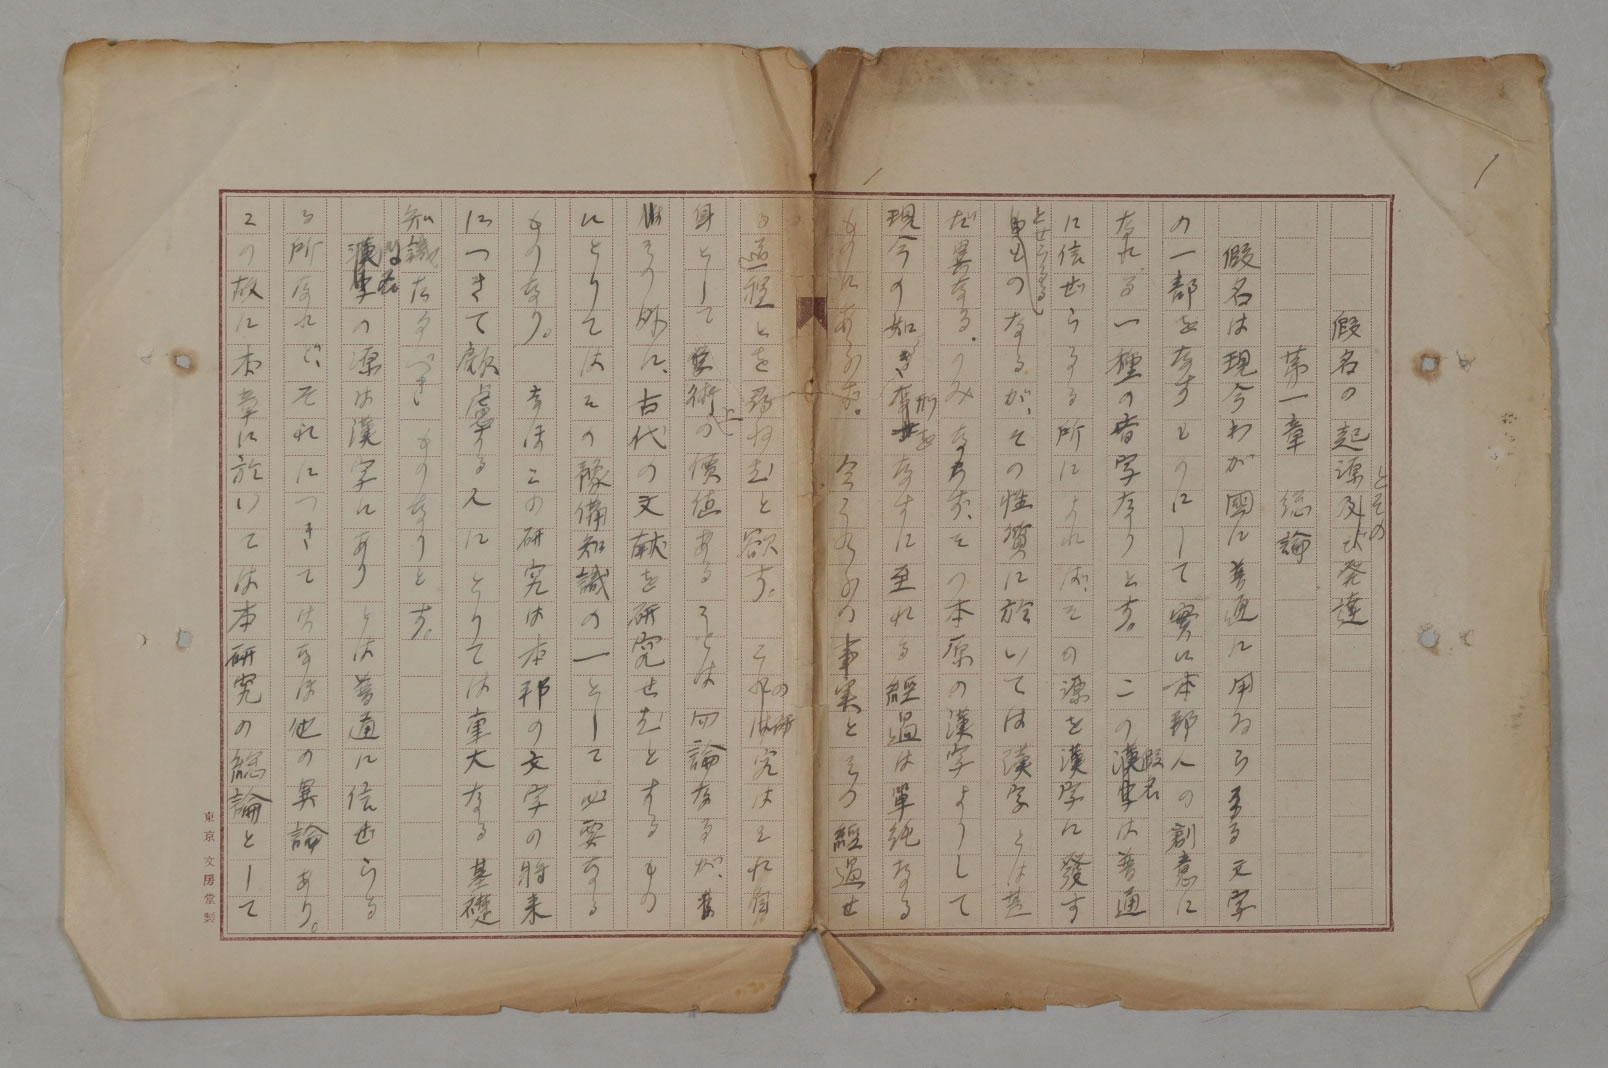 1
假名の起源及び発達
とその
第一章　総論
假名は現今わが國に普通に用ゐらるる文字
の一部をなすものにして實に本邦人の創意に
なれる一種の音字なりとす。この漢字は普通
假名
に信ぜらるる所によれば、その源を漢字に發す
とせらるる
ものなるが、その性質に於いては漢字とは甚
だ異なる。のみならず、その本原の漢字よりして
現今の如きをなすに至れる經過は單純なる
形を
ものにあらず。今これらの事実とその經過せ
る過程とを尋ねむと欲す。この研究はそれ自
身として学術上の價値あることは勿論なるが、
その外に、古代の文献を研究せむとするもの
にとりてはその豫備知識の一として必要なる
ものなり。なほこの研究は本邦の文字の将来
につきて顧慮する人にとりては重大なる基礎
知識たるべきものなりとす。
漢字の源は漢字にありとは普通に信ぜらる
假名
る所なれど、それにつきてはなほ他の異論あり。
この故に本章に於いては本研究の総論として
東京 文房堂製